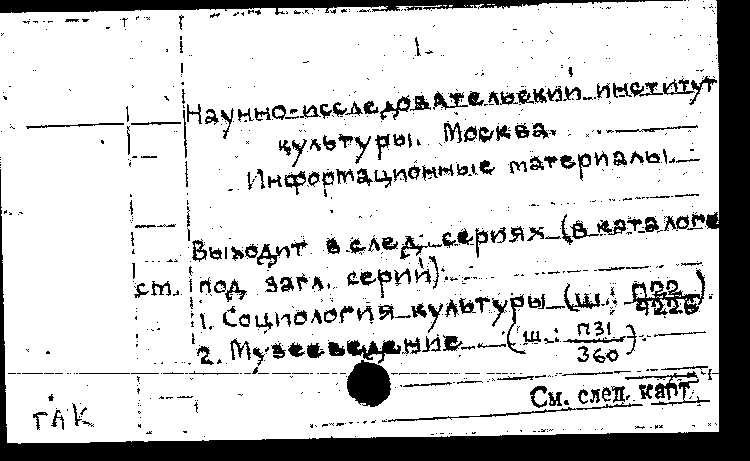 1.
Научно-исследовательский институт
культуры. Москва.
Информационные материалы.
Выходит в след. сериях (в каталоге
ст. под загл. серий):
1. Социология культуры (ш.:
2. Музееведение (ш.: П31
360).
См. след. карт.
ГАК